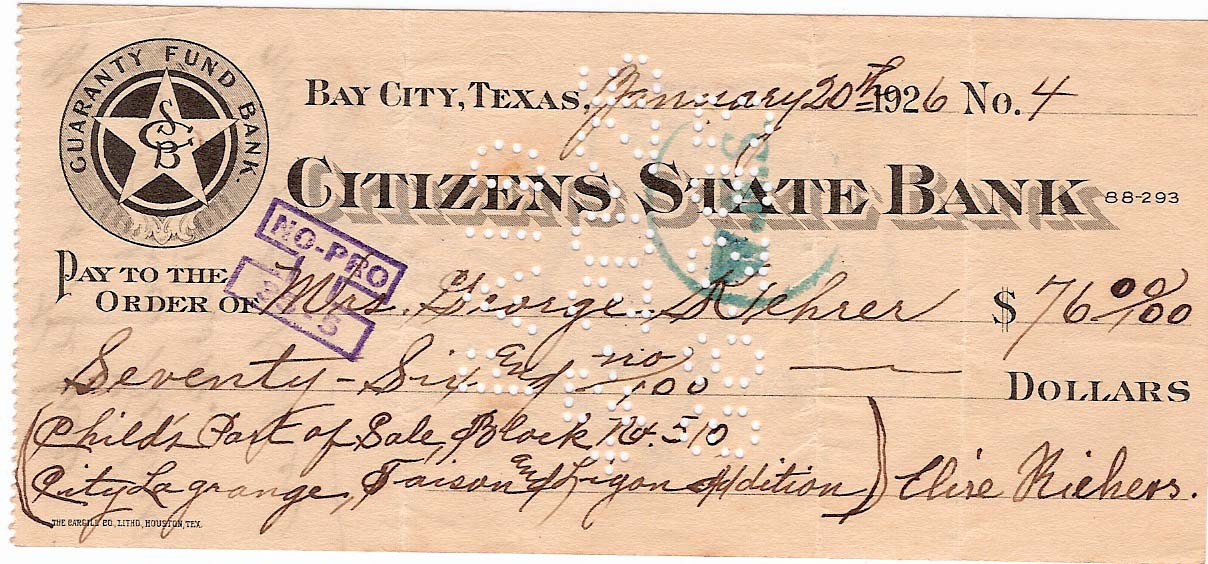 GUARANTY FUND BANK
SCB
BAY CITY, TEXAS, January 20th 1926 No. 4
CITIZENS STATE BANK 88-293
NO-PRO
PAY TO THE ORDER OF Mrs. George Kehrer $ 76 00/100
Seventy-Six and no/100 DOLLARS
(Child's Part of Sale, Block No. 510
City Lagrange, Faison and Ligon Addition)
THE CARGILL CO., LITHO, HOUSTON, TEX.